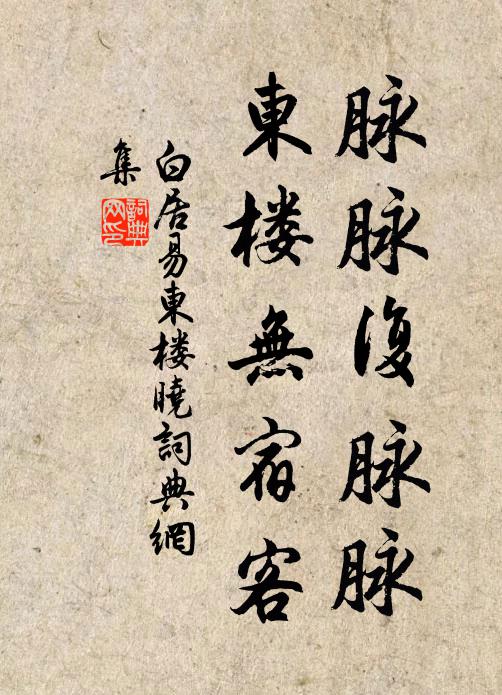 脉脉復脉脉
東楼無宿客
白居易東楼曉詞典網
集
詞典网印